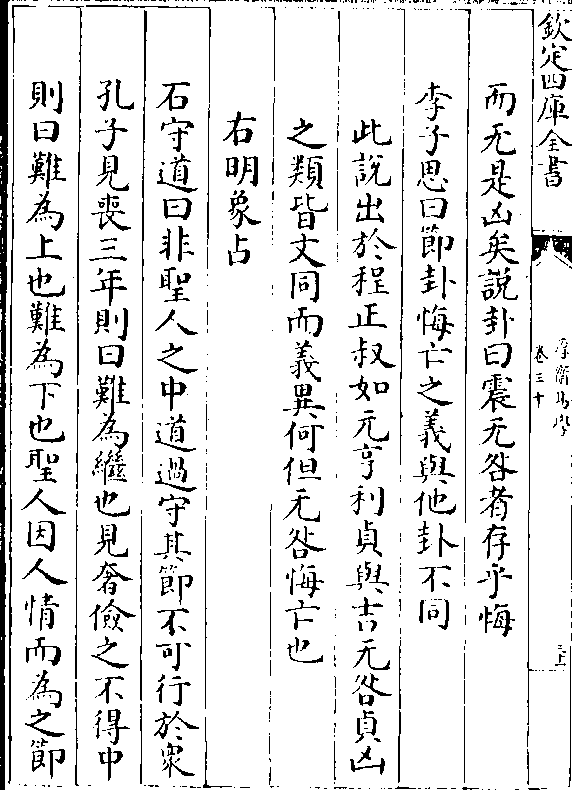 欽定四庫全書
卷三十
而无是凶矣說卦曰震无咎者存乎悔
李子思曰節卦悔亡之義與他卦不同
此說出於程正叔如元亨利貞與吉无咎貞凶
之類皆文同而義異何但无咎悔亡也
右明象占
石守道曰非聖人之中道過守其節不可行於衆
孔子見喪三年則曰難為繼也見奢儉之不得中
則曰難為上也難為下也聖人因人情而為之節